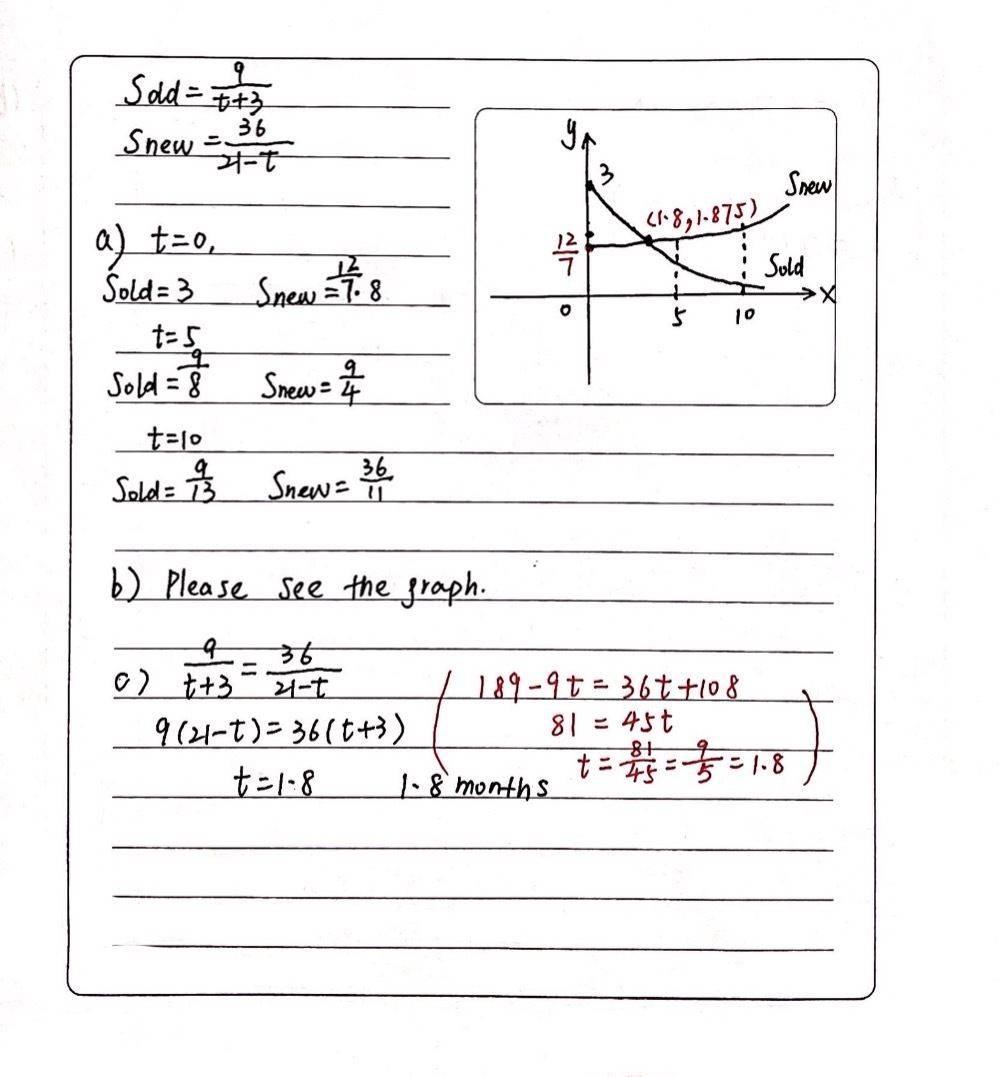 Sold = 9/(t+3)
Snew = 36/(21-t)
a) t=0,
Sold = 3 Snew = 12/7.8
t=5
Sold = 9/8 Snew = 9/4
t=10
Sold = 9/13 Snew = 36/11
b) Please see the graph.
c) 9/(t+3) = 36/(21-t)
9(21-t) = 36(t+3)
t=1.8 1.8 months
(189-9t = 36t+108
81 = 45t
t = 81/45 = 9/5 = 1.8)
y
3
Snew
(1.8,1.875)
12/7
Sold
x
0 5 10